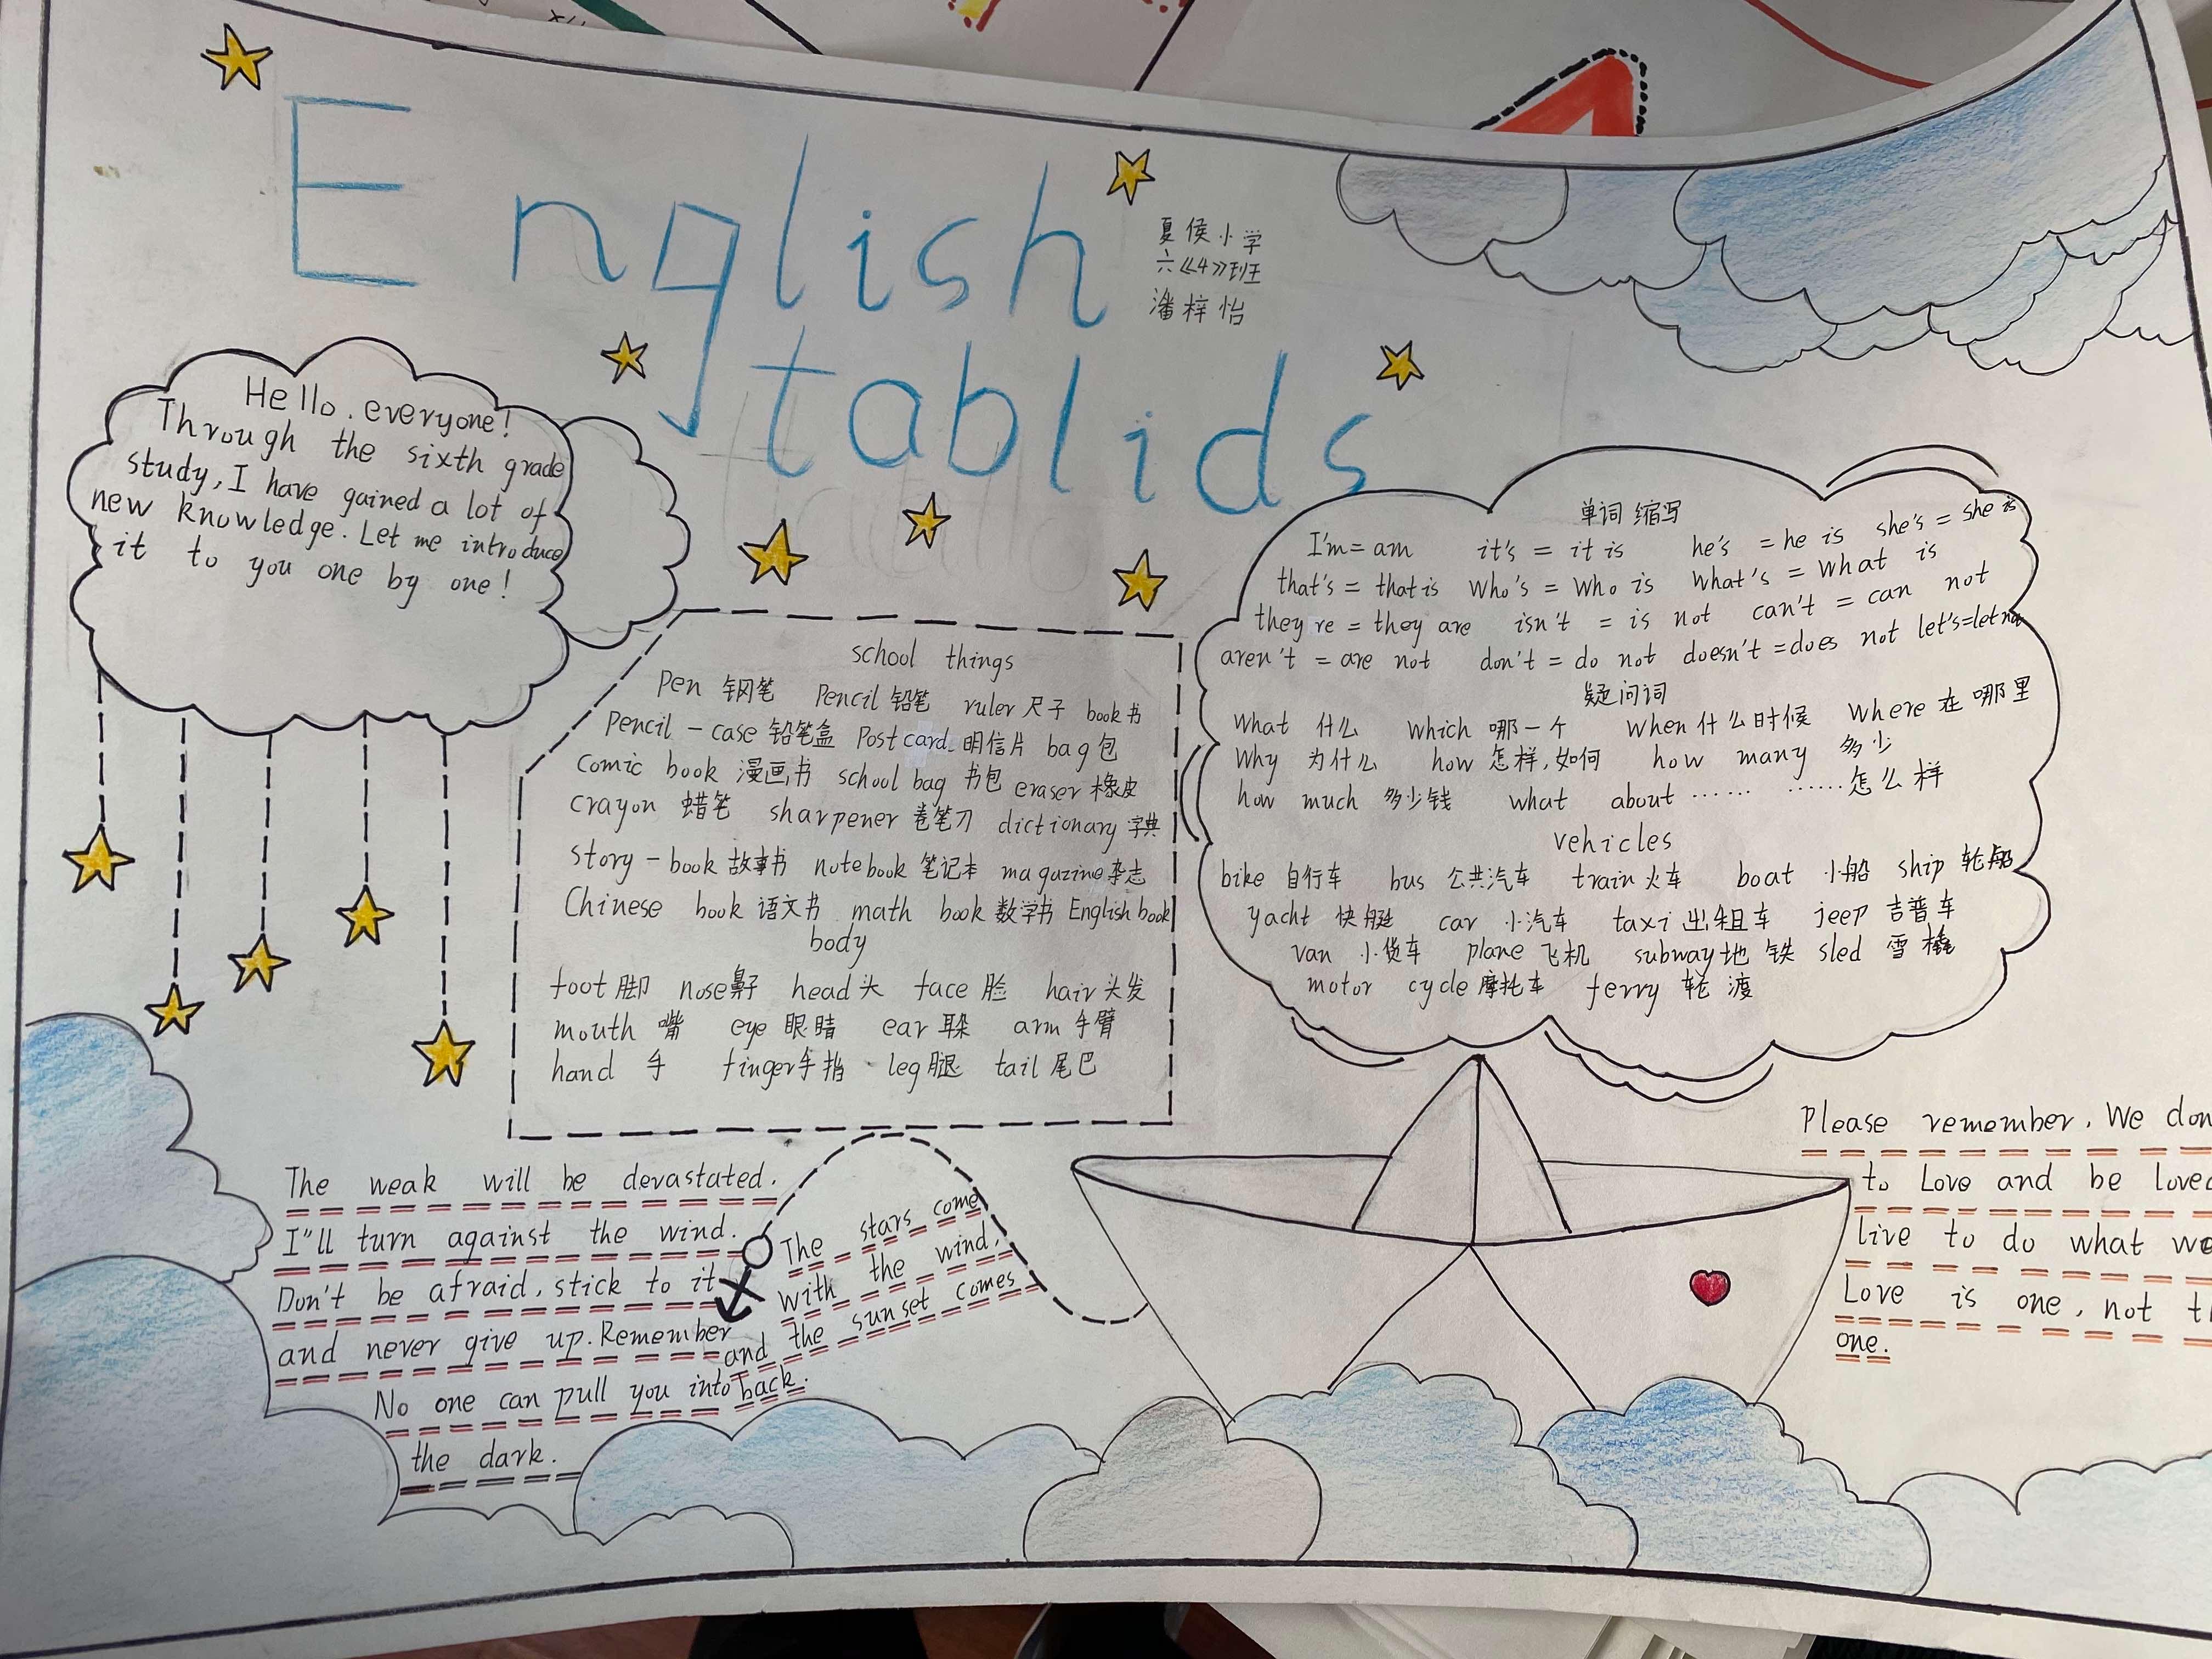 English
tablids
夏侯小学
六《4》班
潘梓怡
Hello. everyone!
Through the sixth grade
study, I have gained a lot of
new knowledge. Let me introduce
it to you one by one!
school things
Pen 钢笔 Pencil 铅笔 ruler 尺子 book 书
Pencil-case 铅笔盒 Postcard 明信片 bag 包
comic book 漫画书 school bag 书包 eraser 橡皮
crayon 蜡笔 sharpener 卷笔刀 dictionary 字典
story-book 故事书 notebook 笔记本 magazine 杂志
Chinese book 语文书 math book 数学书 English book
body
foot 脚 nose 鼻子 head 头 face 脸 hair 头发
mouth 嘴 eye 眼睛 ear 耳朵 arm 手臂
hand 手 finger 手指 leg 腿 tail 尾巴
单词缩写
I'm = am it's = it is he's = he is she's = she is
that's = that is who's = who is what's = what is
they're = they are isn't = is not can't = can not
aren't = are not don't = do not doesn't = does not let's = let
疑问词
What 什么 which 哪一个 when 什么时候 where 在哪里
Why 为什么 how 怎样,如何 how many 多少
how much 多少钱 what about …… ……怎么样
vehicles
bike 自行车 bus 公共汽车 train 火车 boat 小船 ship 轮船
yacht 快艇 car 小汽车 taxi 出租车 jeep 吉普车
van 小货车 plane 飞机 subway 地铁 sled 雪橇
motor cycle 摩托车 ferry 轮渡
The weak will be devastated.
I"ll turn against the wind.
Don't be afraid, stick to it
and never give up. Remember
No one can pull you into
the dark.
The stars come
with the wind,
and the sunset comes
back.
Please remember. We don
to Love and be love
live to do what we
Love is one, not t
one.